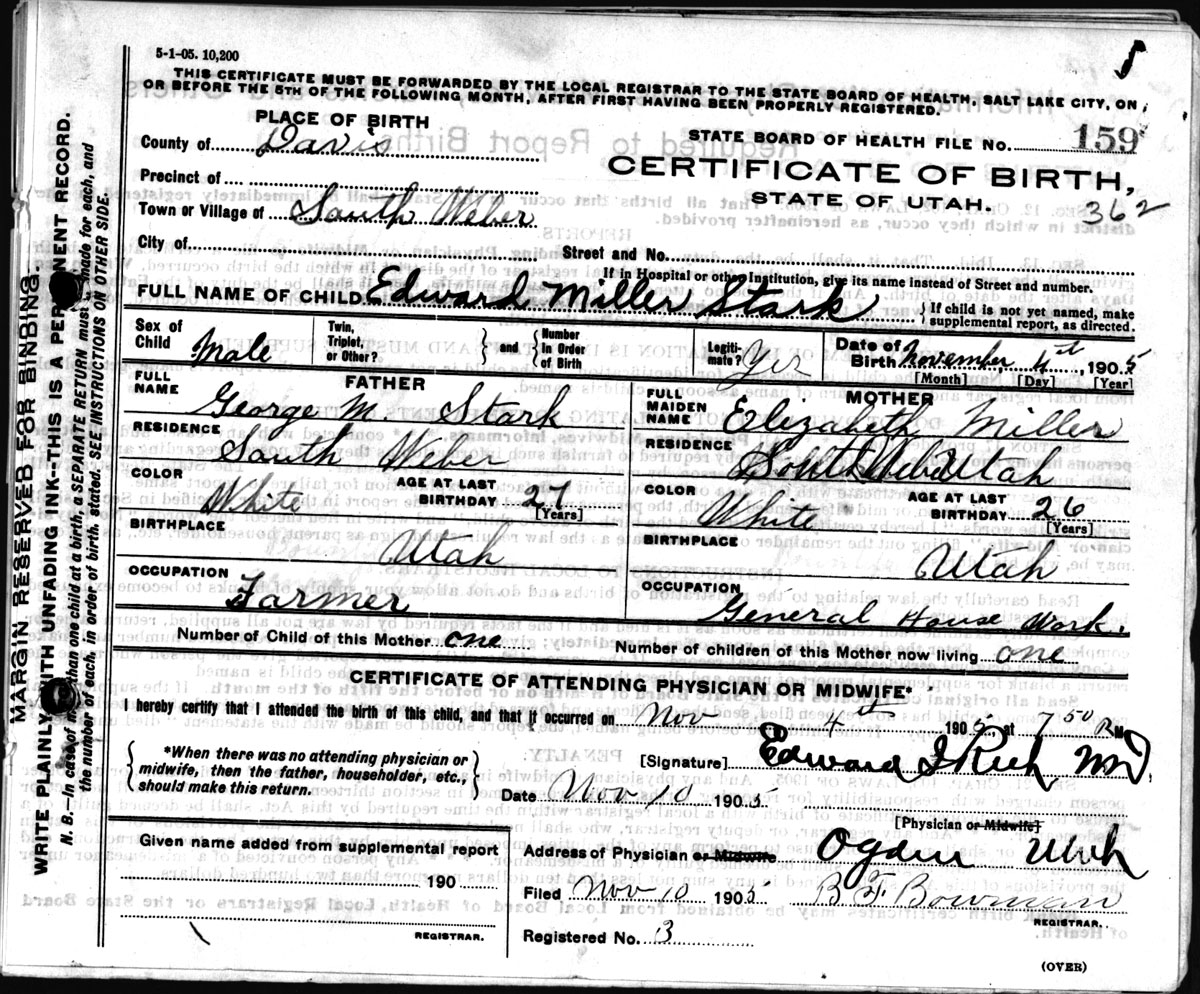 5-1-05. 10,200
THIS CERTIFICATE MUST BE FORWARDED BY THE LOCAL REGISTRAR TO THE STATE BOARD OF HEALTH, SALT LAKE CITY, ON
OR BEFORE THE 5TH OF THE FOLLOWING MONTH, AFTER FIRST HAVING BEEN PROPERLY REGISTERED.
PLACE OF BIRTH
County of Davis
Precinct of
Town or Village of South Weber
STATE BOARD OF HEALTH FILE NO. 159
CERTIFICATE OF BIRTH,
STATE OF UTAH.
362
City of Street and No.
If in Hospital or other Institution, give its name instead of Street and number.
FULL NAME OF CHILD Edward Miller Stark { If child is not yet named, make
supplemental report, as directed.
Sex of Child Male
Twin, Triplet, or Other? } and { Number In Order of Birth
Legiti-mate? Yes
Date of Birth November 4th 1905
[Month] [Day] [Year]
FATHER
FULL NAME George M. Stark
RESIDENCE South Weber
COLOR White AGE AT LAST BIRTHDAY 27 [Years]
BIRTHPLACE Utah
OCCUPATION Farmer
MOTHER
FULL MAIDEN NAME Elizabeth Miller
RESIDENCE South Weber Utah
COLOR White AGE AT LAST BIRTHDAY 26 [Years]
BIRTHPLACE Utah
OCCUPATION General House Work.
Number of Child of this Mother one Number of children of this Mother now living one
CERTIFICATE OF ATTENDING PHYSICIAN OR MIDWIFE*
I hereby certify that I attended the birth of this child, and that it occurred on Nov 4th 1905 at 7 50 P M
{ *When there was no attending physician or
midwife, then the father, householder, etc.,
should make this return. }
[Signature] Edward I Rich MD.
Date Nov 10 1905
[Physician or Midwife]
Given name added from supplemental report
190
REGISTRAR.
Address of Physician or Midwife Ogden Utah
Filed Nov 10 1905 B F Bowman
REGISTRAR.
Registered No. 3
(OVER)
MARGIN RESERVED FOR BINDING.
WRITE PLAINLY WITH UNFADING INK--THIS IS A PERMANENT RECORD.
N. B.--In case of more than one child at a birth, a SEPARATE RETURN must be made for each, and
the number of each, in order of birth, stated. SEE INSTRUCTIONS ON OTHER SIDE.